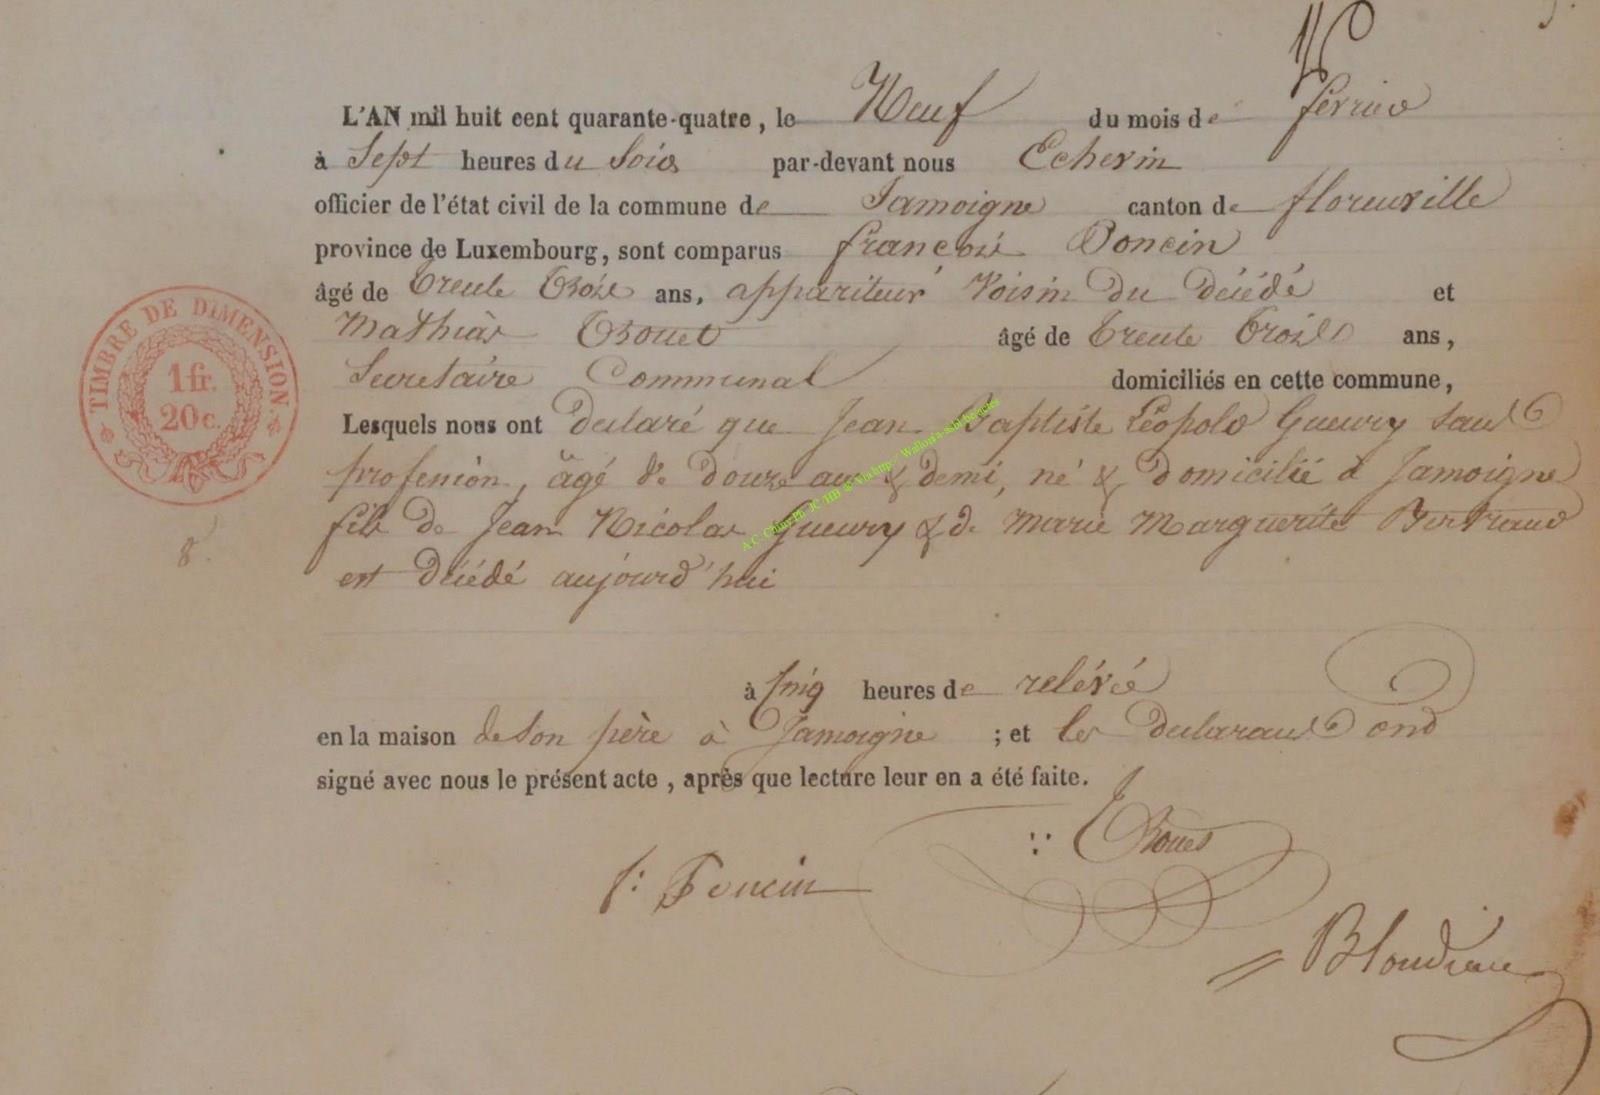 L'AN mil huit cent quarante-quatre, le Neuf du mois de fevrier
à Sept heures du Soir par-devant nous Echevin
officier de l'état civil de la commune de Jamoigne canton de florenville
province de Luxembourg, sont comparus francois Poncin
âgé de trente trois ans, appariteur Voisin du décédé et
Mathias Thouet âgé de trente trois ans,
Secretaire Communal domiciliés en cette commune,
Lesquels nous ont declaré que Jean Baptiste Léopold Gueury sans
profession, âgé de douze ans & demi, né & domicilié à Jamoigne
fils de Jean Nicolas Gueury & de Marie Marguerite Bertrand
est décédé aujourd'hui
à Cinq heures de relévée
en la maison de son père à Jamoigne ; et les declarants ont
signé avec nous le présent acte, après que lecture leur en a été faite.
Thouet
f: Poncin
Blondiau
TIMBRE DE DIMENSION.
1 fr.
20 c.
8.